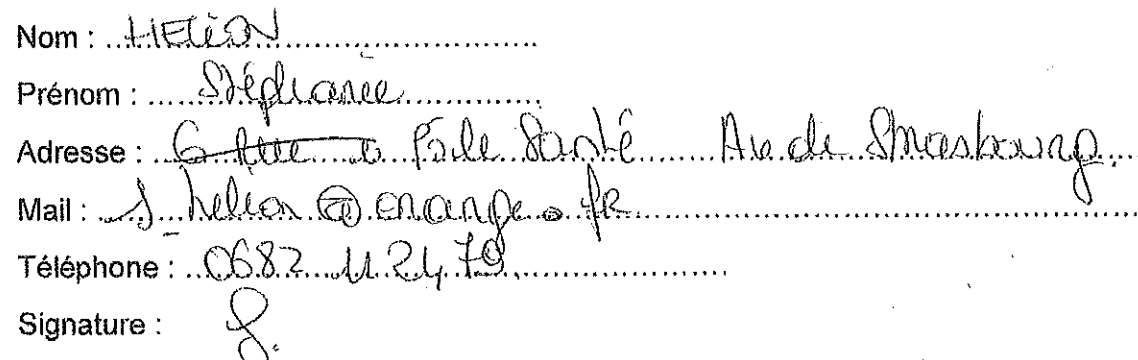 Nom : HELION
Prénom : Stéphanie
Adresse : 6 rue Pôle Santé Av de Strasbourg.
Mail : s_helion@orange.fr
Téléphone : 0682 11 24 79
Signature :